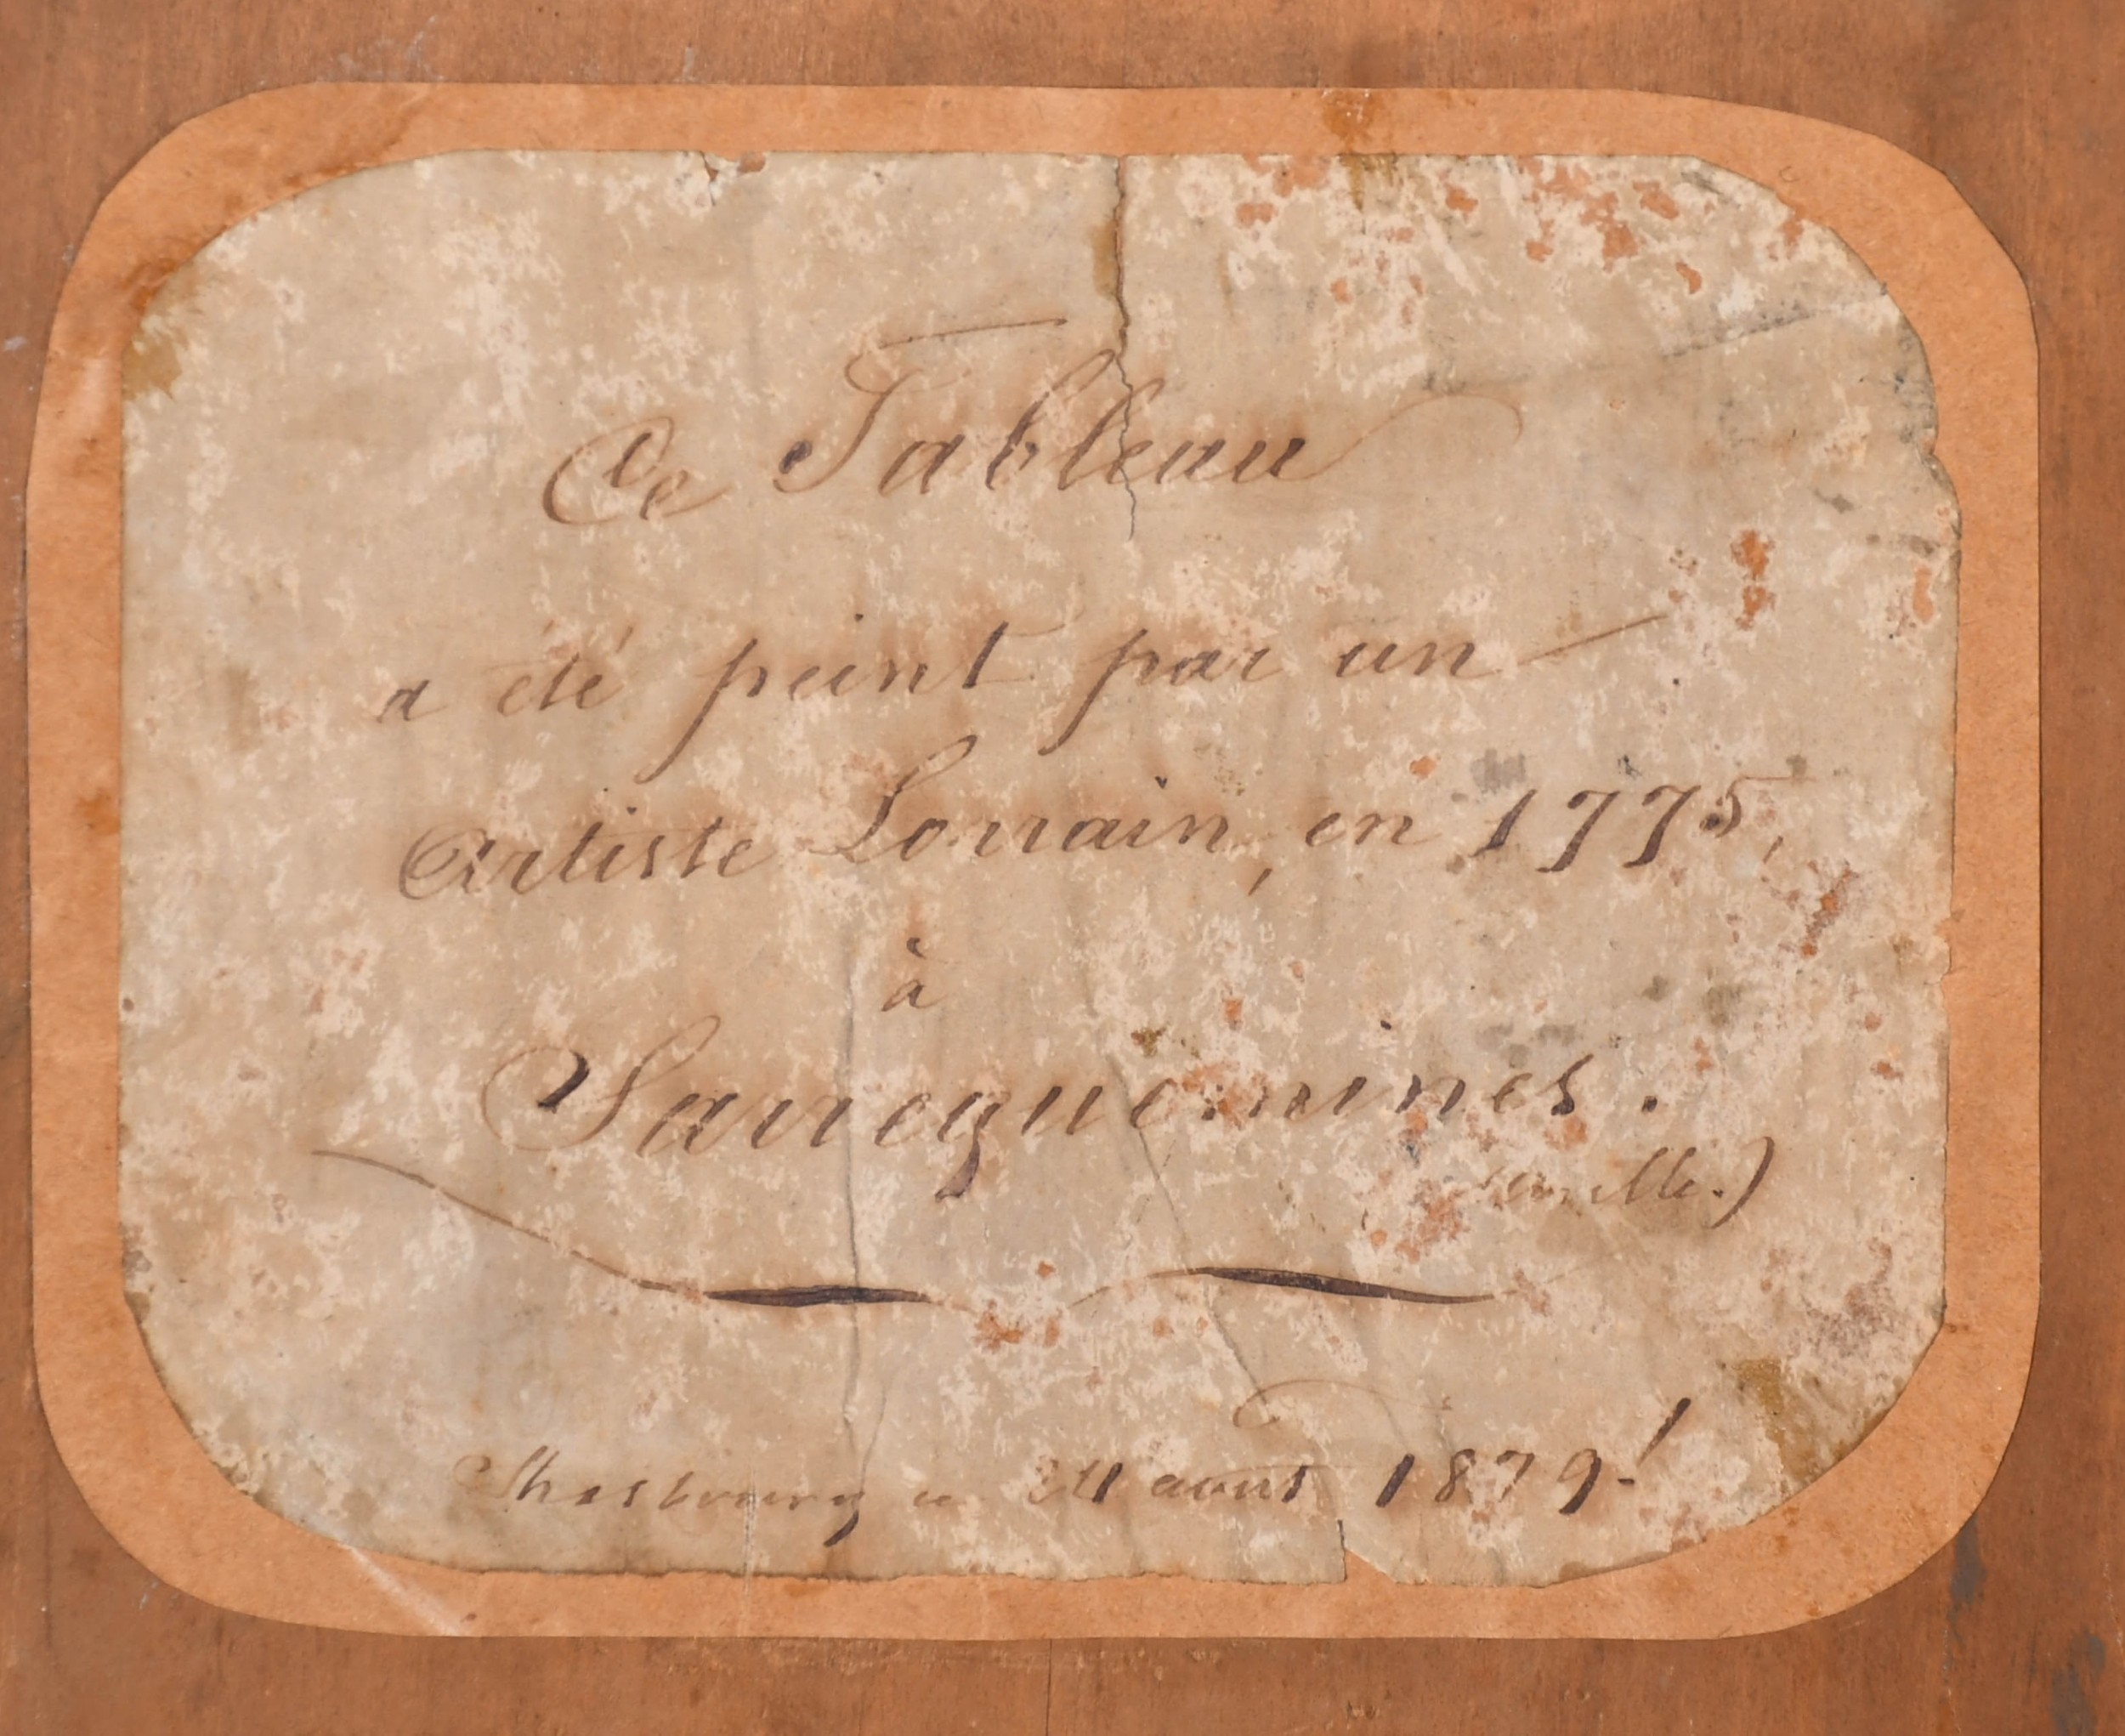 Ce Tableau
a été peint par un
Artiste Lorrain, en 1775,
à
Sarreguemines.
Strasbourg août 1879!